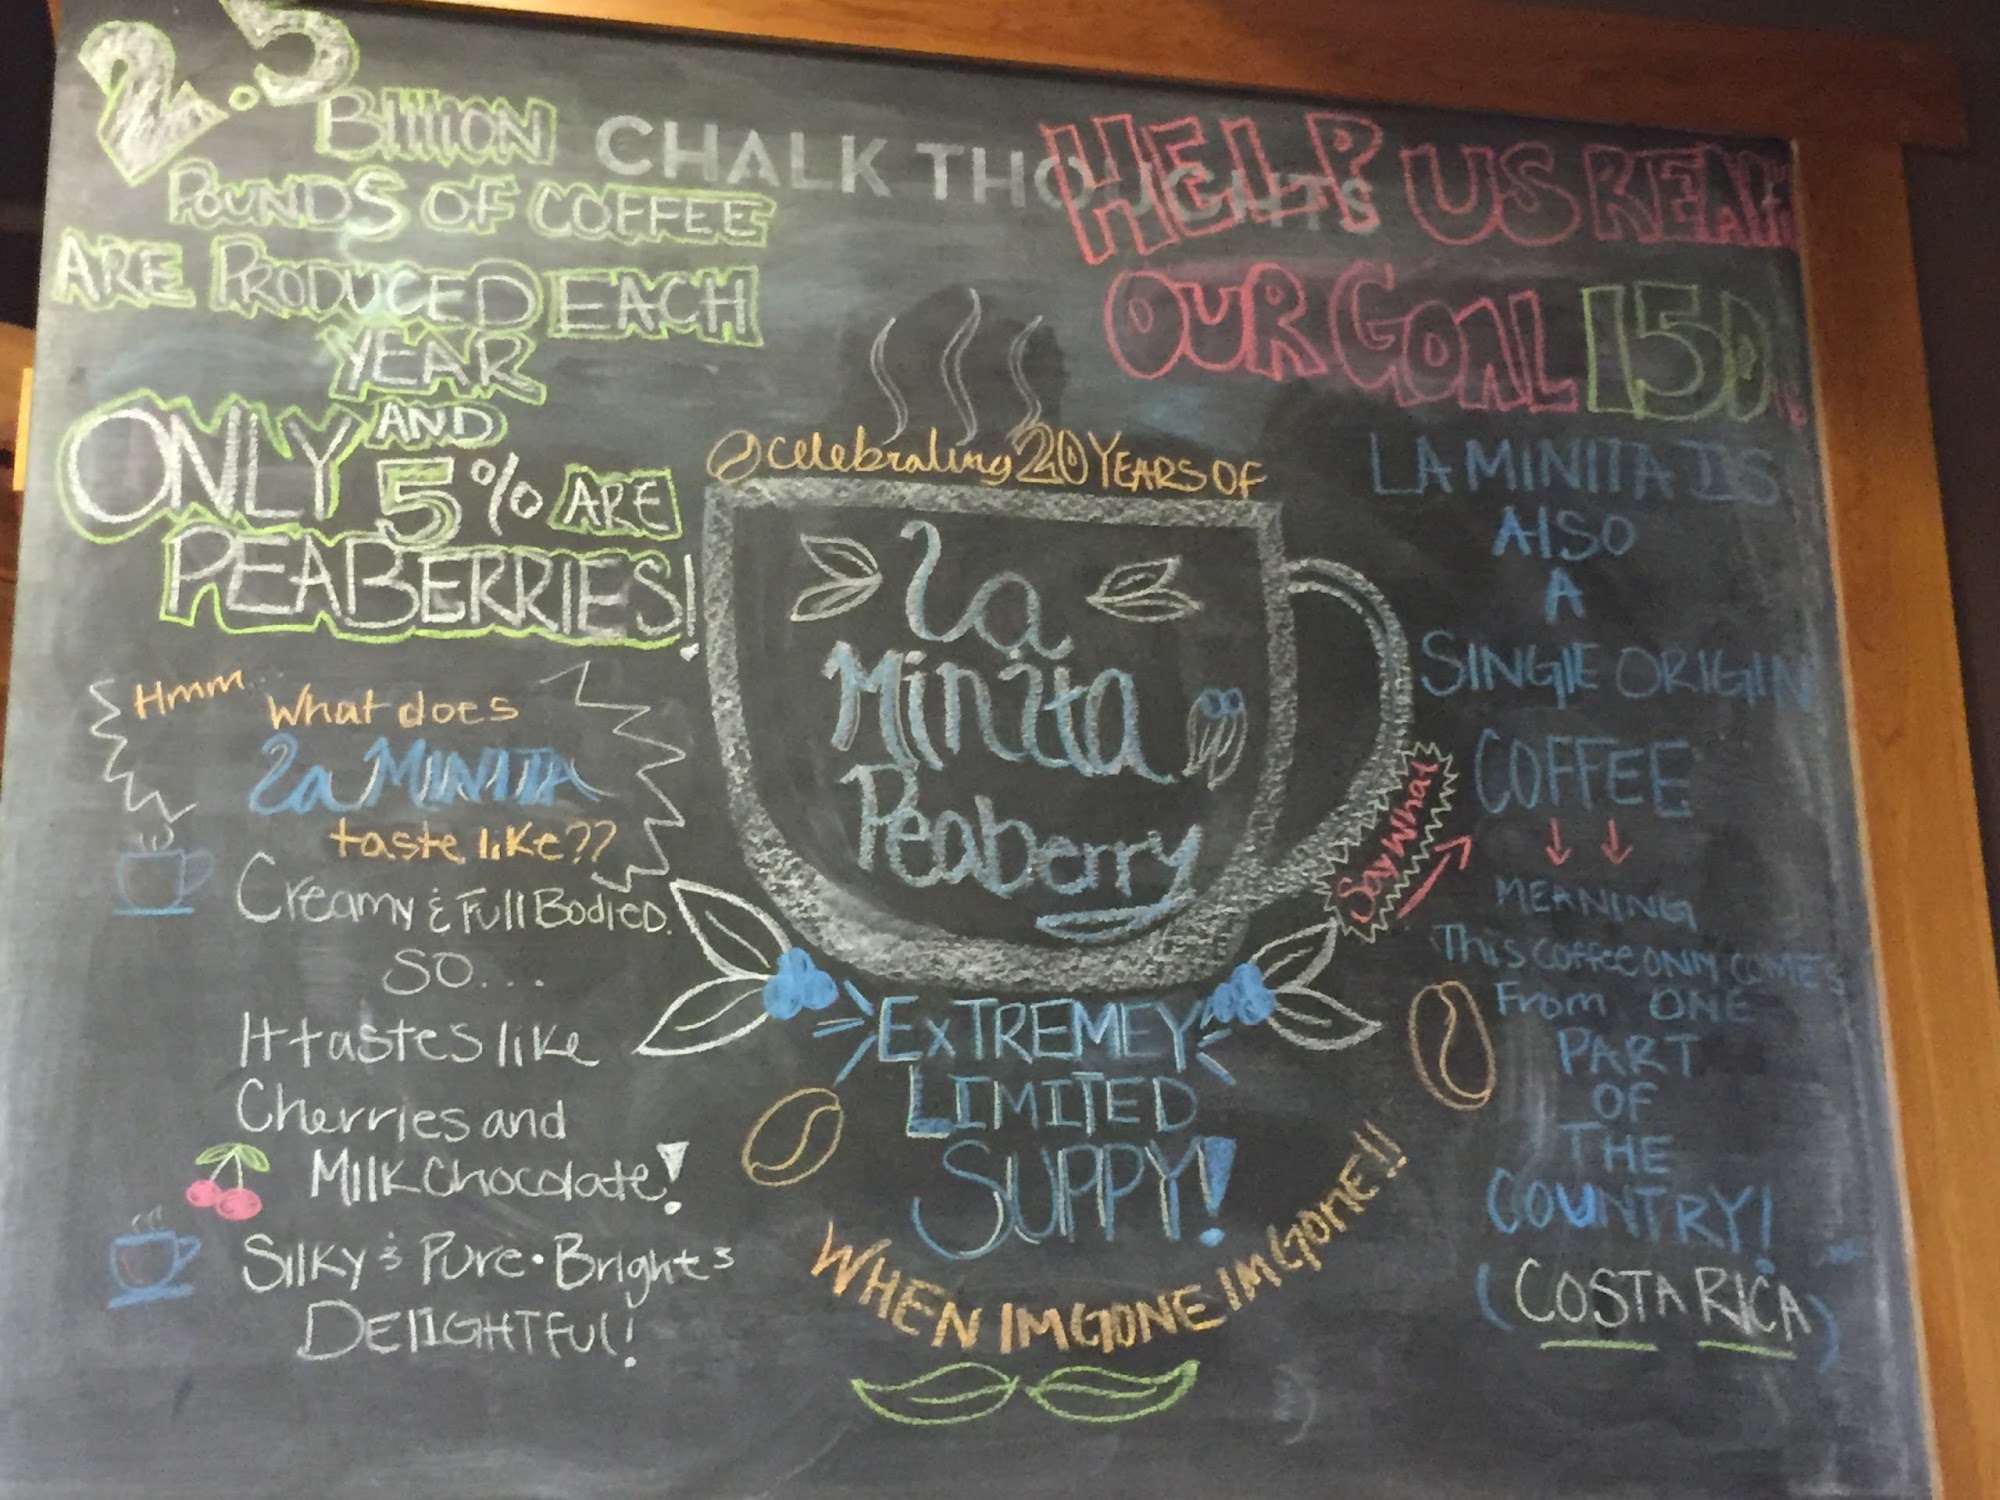 2.5
BIllION
POUNDS OF COFFEE
ARE PRODUCED EACH
YEAR
AND
ONLY 5% ARE
PEABERRIES!
CHALK THOUGHTS
HELP US REAH
OUR GOAL 150
Hmm... What does
La MINITA
taste like??
Creamy & Full Bodied.
SO...
It tastes like
Cherries and
Milk Chocolate!
Silky & Pure • Bright &
DElIGHTFUl!
Celebrating 20 YEARS OF
La
Minita
Peaberry
EXTREMEY
LIMITED
SUPPY!
WHEN IM GONE IM GONE!!
LA MINITA IS
AlSO
A
SINGlE ORIGIN
COFFEE
Say What
MEANING
This coffee ONlY COMES
From ONE
PART
OF
THE
COUNTRY!
(COSTA RICA)